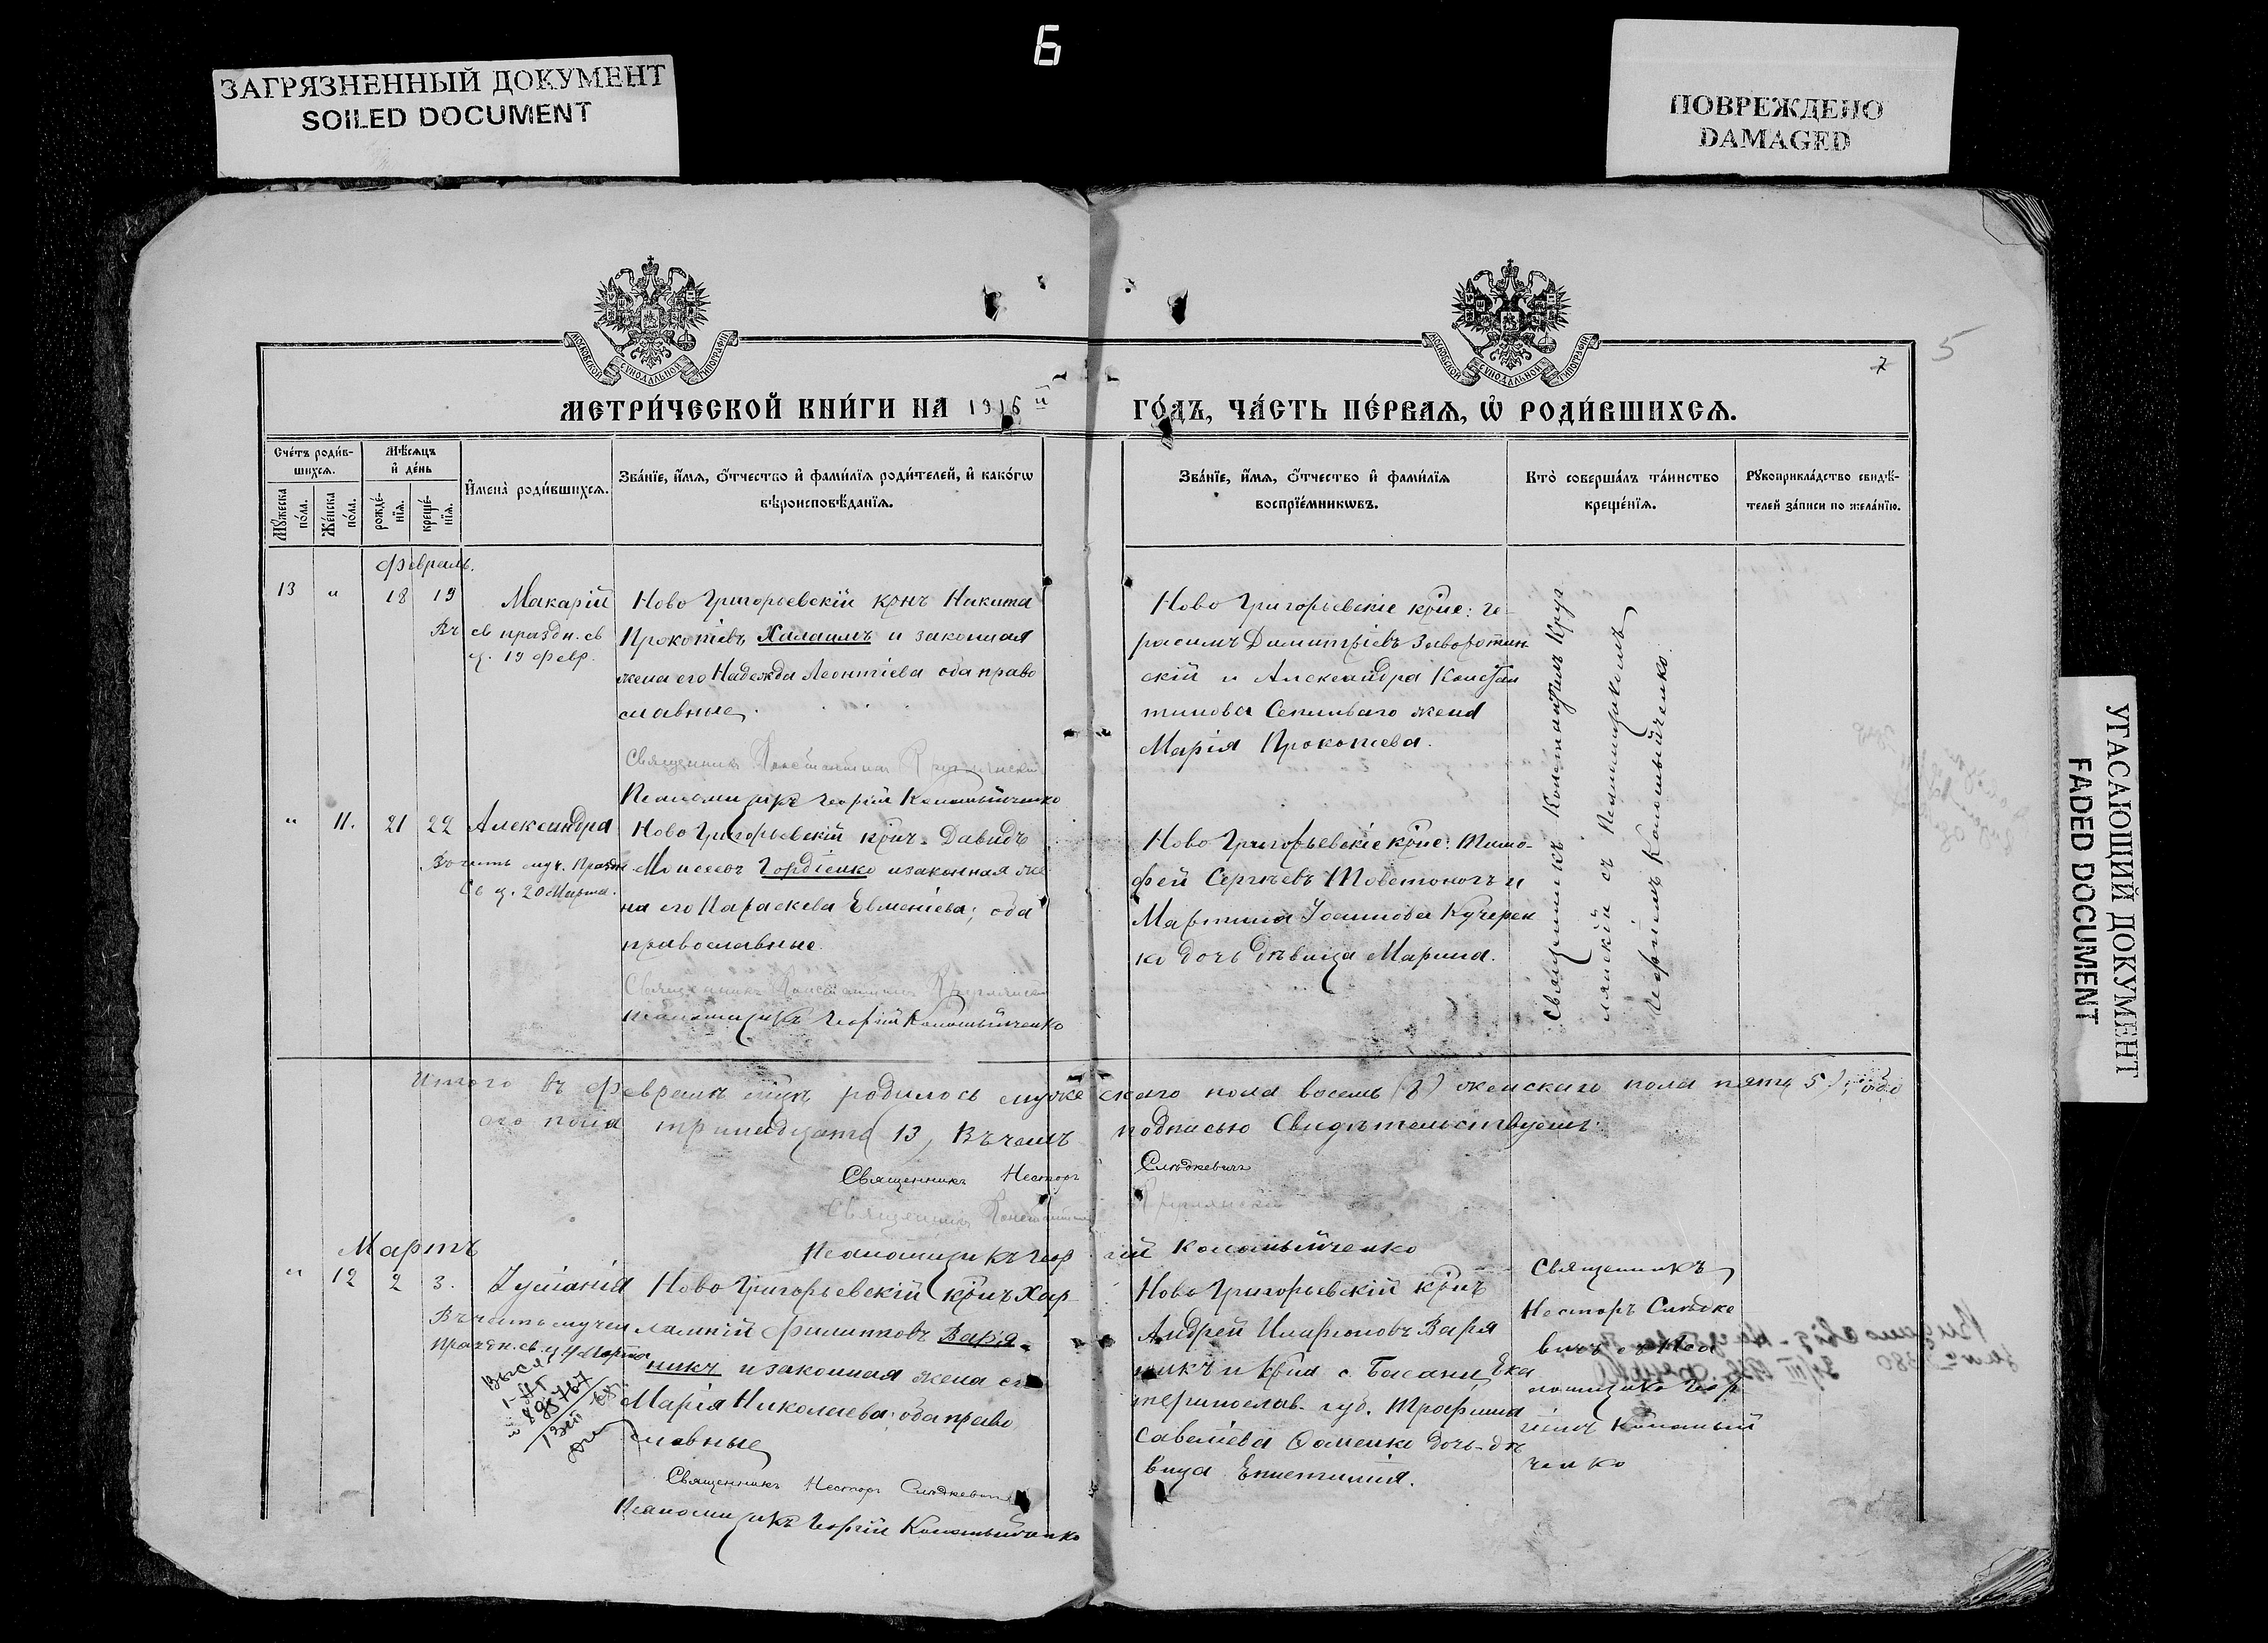 Б
ЗАГРЯЗНЕННЫЙ ДОКУМЕНТ
SOILED DOCUMENT
ПОВРЕЖДЕНО
DAMAGED
УГАСАЮЩИЙ ДОКУМЕНТ
FADED DOCUMENT
МОСКОВСКОЙ СУНОДАЛЬНОЙ ТИПОГРАФІИ
МОСКОВСКОЙ СУНОДАЛЬНОЙ ТИПОГРАФІИ
5
7
МЕТРИ́ЧЕСКОЙ КНИ́ГИ НА 1916 й
ГО́ДЪ, ЧА́СТЬ ПЕ́РВАЯ, Ѡ РОДИ́ВШИХСЯ.
Сче́тъ роди́в-
шихся.
Мѣ́сяцъ
и де́нь
Му́жеска
по́ла.
Же́нска
по́ла.
рожде́-
нїя.
креще́-
нїя.
Имена̀ роди́вшихся.
Зва́нїе, и́мя, о́тчество и фами́лїя роди́телей, и како́гѡ
вѣроисповѣ́данїя.
Зва́нїе, и́мя, о́тчество и фами́лїя
воспрїе́мникѡвъ.
Кто̀ соверша́лъ та́инство
креще́нїя.
Рꙋкоприкла́дство свидѣ́-
телей за́писи по жела́нїю.
Февраль.
13 " 18 19 Макарій
Въ св праздн. св
ч. 19 февр.
Ново Григорьевскій крнъ Никита
Прокопіевъ Халаимъ и законная
жена его Надежда Леонтіева оба право
славные.
Священникъ Константинъ Круглянскій
Псаломщикъ Георгій Коломыйченко
Ново Григорьевскіе крне: Ге-
расимъ Димитріевъ Заворотин
скій и Александра Констан
тинова жена
Марія Прокопіева.
Священникъ Константинъ Круг
лянскій съ Псаломщикомъ
Георгіемъ Коломыйченко.
" 11. 21 22 Александра
Въ честь муч. Праздн
Св ч. 20 Марта.
Ново Григорьевскій крнъ Давидъ
Моисеевъ Гордіенко и законная же
на его Параскева Евменіева; оба
православные.
Священникъ Константинъ Круглянскій
Псаломщикъ Георгій Коломыйченко
Ново Григорьевскіе крне: Тимо-
фей Сергѣевъ Товстоногъ и
Мартина Іоаннова Кучерен
ко дочь дѣвица Марина.
Итого въ Февралѣ мцѣ родилось муже скаго пола восемь (8) женскаго пола пять (5), обо
его пола тринадцать (13) Въ чемъ подписью Свидѣтельствуемъ:
Священникъ Несторъ Слѣдкевичъ
Священникъ Константинъ Круглянскій
Псаломщикъ Георгій Коломыйченко
Мартъ
" 12 2 3. Іуліанія
Въ честь мучен
Праздн. св. ч 4 Марта
Ново Григорьевскій крнъ Хар
лампій Филипповъ Варя-
никъ и законная жена его
Марія Николаева; оба право
славные
Священникъ Несторъ Слѣдкевичъ
Псаломщикъ Георгій Коломыйченко
Ново Григорьевскій крнъ
Андрей Иларіоновъ Варя
никъ и крна с. Басани, Ека
теринослав. губ. Трофима
Савеліева Фоменко дочь-дѣ
вица Епистимія.
Священникъ
Несторъ Слѣдке
вичъ съ Пса
ломщикомъ Геор
гіемъ Коломый
ченко